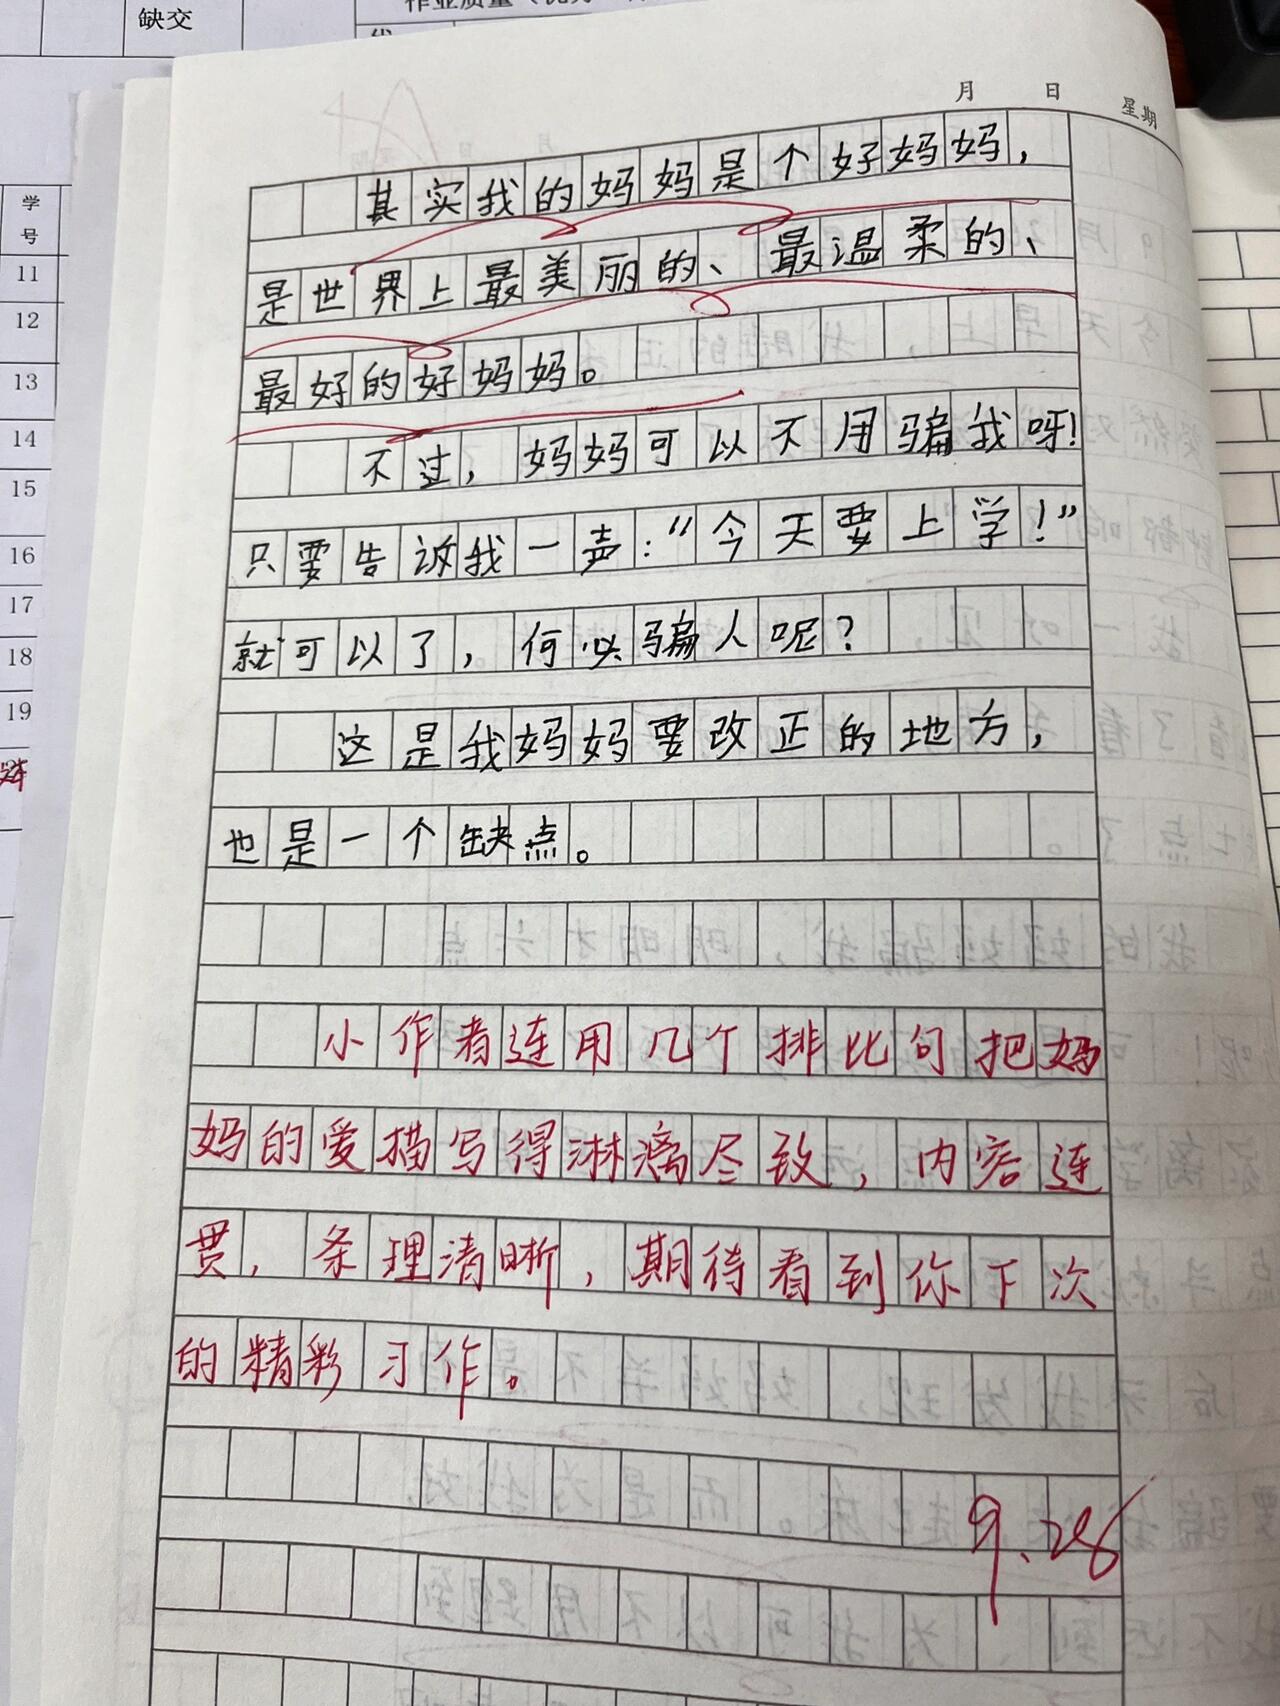 缺交
月 日 星期
学号
11
12
13
14
15
16
17
18
19
其实我的妈妈是个好妈妈，
是世界上最美丽的、最温柔的、
最好的好妈妈。
不过，妈妈可以不用骗我呀！
只要告诉我一声：“今天要上学！”
就可以了，何必骗人呢？
这是我妈妈要改正的地方，
也是一个缺点。
小作者连用几个排比句把妈
妈的爱描写得淋漓尽致，内容连
贯，条理清晰，期待看到你下次
的精彩习作。
9.28